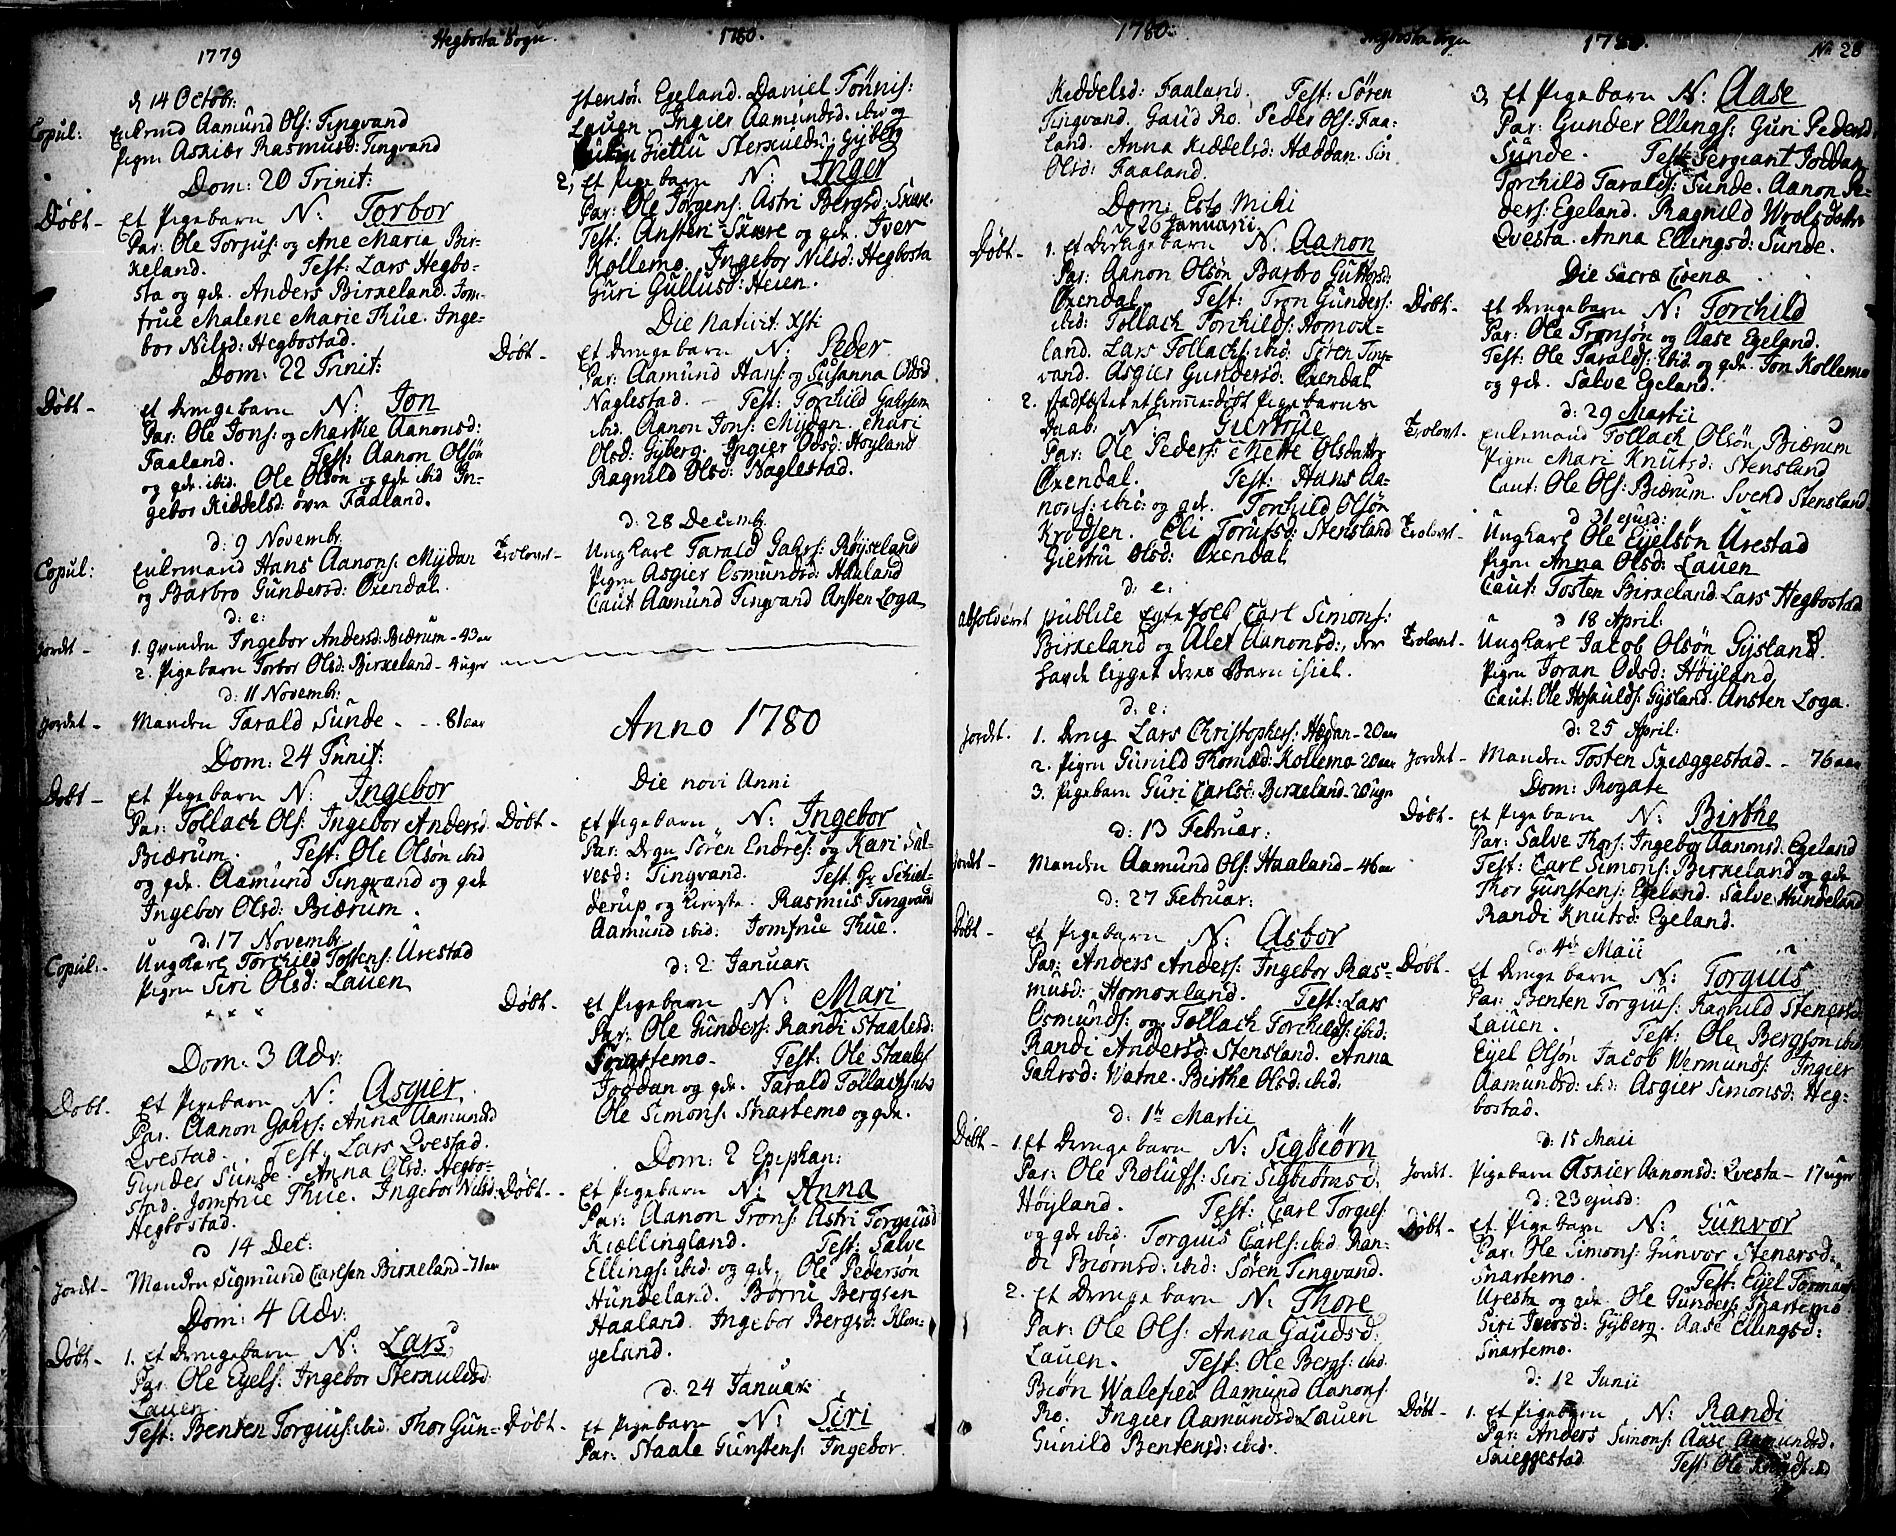 1779
Hegbosta Sogn
1780.
d 14 Octobr:
Copul: Enkemd Aamund Ols: Tingvand
Pigen Askier Rasmusd: Tingvand
Dom: 20 Trinit:
Døbt - et Pigebarn N: Torbor
Par: Ole Torjus: og Ane Maria Bir-
keland. Test: Lars Hegbo-
sta og qde. Anders Birkeland. Jom-
frue Malene Marie Thue. Inge-
bor Nilsd: Hegbostad.
Dom: 22 Trinit:
Døbt - et Drengebarn N: Jon
Par: Ole Jons: og Marthe Aanonsd:
Faaland. Test: Aanon Olsøn
og qde. ibid. Ole Olsøn og qde ibid In-
gebor Kiddelsd: øvre Faaland.
d: 9 Novembr
Copul: Enkemand Hans Aanons: Mydan
og Barbro Gundersd: Oxendal.
d: e:
Jordet - 1. Qvinden Ingebor Andersd: Biærum - 43 aar
2. Pigebarn Torbor Olsd: Birkeland - 4 uger
d: 11 Novembr:
Jordet - Manden Tarald Sunde - - 81 aar
Dom: 24 Trinit:
Døbt - et Pigebarn N: Ingebor
Par: Tollach Ols: Ingebor Andersd
Biærum. Test: Ole Olsøn ibid
og qde. Aamund Tingvand og qde
Ingebor Olsd: Biærum.
d: 17 Novembr
Copul: - Ungkarl Torchild Tostens: Urestad
Pigen Siri Olsd: Lauen
Dom: 3 Adv:
Døbt. et Pigebarn N: Asgier
Par: Aanon Gahrs: Anna Aamundsd
Qvestad. Test: Lars Qvestad.
Gunder Sunde. Anna Olsd: Hegbo-
stad. Jomfrue Thue. Ingebor Nilsd:
Hegbostad.
d 14 Dec:
Jordet - Manden Sigmund Carlsen Birkeland - 71 aar
Dom: 4 Adv:
Døbt - 1. et Drengebarn N: Lars
Par: Ole Eyels: Ingebor Sterkuldsd
Lauen
Test: Benten Torgius: ibid. Thor Gun-
stensøn Egeland. Daniel Tønnis:
Lauen Ingier Aamundsd. ibid og
Giettu Sterkuldsd: Gyberg
2, et Pigebarn N: Inger
Par: Ole Jørgens: Astri Bergsd: Skare.
Test: Ansten Skare og qde. Iver
Kollemo. Ingebor Nilsd: Hegbosta
Guri Gullusd: Heien.
Die Nativit: Xsti
Døbt - et Drengebarn N: Peder
Par: Aamund Hans: og Susanna Odsd
Naglestad. - Test: Torchild Gahrsen
ibid. Aanon Jons: Mydgn. Mari
Olsd: Gyberg. Ingier Odsd: Høyland
Ragnild Olsd: Naglestad.
d: 28 Decemb.
Trolovt - Ungkarl Tarald Gahrs: Røyseland
Pigen Asgier Osmundsd: Haaland
Caut Aamund Tingvand Ansten Loga
Anno 1780
Die novi Anni
Døbt - et Pigebarn N: Ingebor
Par: Degn Søren Endres: og Kari Sal-
vesd: Tingvand. Test Gr Schiel-
derup og Kieriste. Rasmus Tingvand
Aamund ibid: Jomfrue Thue.
d: 2 Januar:
Døbt - et Pigebarn N: Mari
Par: Ole Gunders: Randi Staalesd:
Snartemo - Test: Ole Staales
Frøddan og qde. Tarald Tollachs ibid
Ole Simons: Snartemo og qde.
Dom: 2 Epiphan:
Døbt - et Pigebarn N: Anna
Par: Aanon Trons: Astri Torgiusd
Kiællingland. Test: Salve
Ellings: ibid og qde. Ole Pedersøn
Hundeland. Børru Bergsen
Haaland. Ingebor Bergsd: Klun-
geland.
d: 24 Januar:
Døbt - et Pigebarn N: Siri
Par: Staale Gunstens: Ingebor
1780:
Hegbosta Sogn
1780.
No 28
Kiddelsd: Faaland. Test: Søren
Tingvand. Gaud Ro. Peder Ols: Faa-
land. Anna Kiddelsd: Hæddan. Siri
Olsd: Faaland.
Dom: Esto Mihi
26 Januarii
Døbt - 1. et Drengebarn N: Aanon
Par: Aanon Olsøn Barbro Guttormsd:
Oxendal. Test: Tron Gunders:
ibid: Tollach Torchilds: Homox-
land. Lars Tollachs: ibid: Søren Ting-
vand. Asgier Gundersd: Oxendal
2. stadfæstet et hiemmedøbt Pigebarns
Daab N: Giertrue
Par: Ole Peders: Mette Olsdatter
Oxendal. Test: Hans Aa-
nons: ibid: og qde. Torchild Olsøn
Krodsen. Eli Torufsd: Stensland
Giertru Olsd: Oxendal
d: e:
Absolveret publice Egtefolk Carl Simons:
Birkeland og Alet Aanonsd:, der
havde ligget deres Barn ihiel.
d: e:
Jordet. 1. Dreng Lars Christophers: Hædan - 20 aar
2. Pigen Gunild Thomæd: Kollemo 20 aar
3. Pigebarn Guri Carlsd: Birkeland - 20 uger
d: 13 Februar:
Jordet - Manden Aamund Ols: Haaland - 46 aar
d: 27 Februar:
Døbt - et Pigebarn N: Asbor
Par: Anders Anders: Ingebor Ras-
musd: Homoxland. Test: Lars
Osmunds: og Tollach Torchilds: ibid:
Randi Andersd: Stensland. Anna
Gahrsd: Watne. Birthe Olsd: ibid.
d: 1te Martii
Døbt - 1. et Drengebarn N: Sigbiørn
Par: Ole Rolufs: Siri Sigbiørnsd:
Høyland. Test: Carl Torgies:
og qde ibid. Torguis Carls: ibid Ran-
di Biørnsd: ibid: Søren Tingvand.
2. et Drengebarn N: Thore
Par: Ole Ols: Anna Gaudsd:
Lauen. Test: Ole Bergs: ibid.
Biørn Walefied. Aamund Aanons.
Ro. Ingier Aamundsd: Lauen
Gunild Bentensd: ibid.
3, et Pigebarn N: Aase
Par: Gunder Ellings: Guri Pedersd
Sunde. Test: Sergeant Joddan
Torchild Taralds: Sunde. Aanon Pe-
ders: Egeland. Ragnild Wrolsdatter
Qvesta. Anna Ellingsd: Sunde.
Die Sacræ Coenæ
Døbt - et Drengebarn N: Torchild
Par: Ole Tronsøn og Aase Egeland.
Test: Ole Taralds: ibid og qde. Jon Kollemo
og qde. Salve Egeland.
d: 29 Martii
Trolovt. Enkemand Tollach Olsøn Biærum
Pigen Mari Knutsd: Stensland
Caut: Ole Ols: Biærum. Svend Stensland
d 31 ejusd:
Trolovt - Ungkarl Ole Eyelsøn Urestad
Pigen Anna Olsd: Lauen
Caut: Tosten Birkeland. Lars Hegbostad
d 18 April
Trolovt - Ungkarl Jacob Olsøn Gysland.
Pigen Joran Odsd: Høyland
Caut: Ole Hoskulds: Gysland. Ansten Loga.
d: 25 April:
Jordet - Manden Tosten Skeggestad - - 76 aar
Dom: Rogate
Døbt - et Pigebarn N: Birthe
Par: Salve Thors: Ingebor Aanonsd: Egeland
Test: Carl Simons: Birkeland og qde
Thor Gunstens: Egeland. Salve Hundeland
Randi Knutsd: Egeland.
d. 4de Maii
Døbt - et Drengebarn N: Torgius
Par: Benten Torgius: Ragnild Stenersd:
Lauen. Test: Ole Bergsøn ibid
Eyel Olsøn Jacob Wermunds: Ingier
Aamundsd: ibid: Asgier Simonsd: Heg-
bostad.
d: 15 Maii
Jordet. Pigebarn Askier Aanonsd: Qvesta - 17 uger
d: 23 ejusd:
Døbt - et Pigebarn N: Gunvor
Par: Ole Simons: Gunvor Stenersd:
Snartemo. Test: Eyel Tormods
Uresta og qde. Ole Gunders: Snartemo
Siri Iversd: Gyberg. Aase Ellingsd:
Snartemo.
d: 12 Junii
Døbt - 1. et Pigebarn N: Randi
Par: Anders Simons: Aase Aamundsd.
Skieggestad Test: Ole Knuds ibid